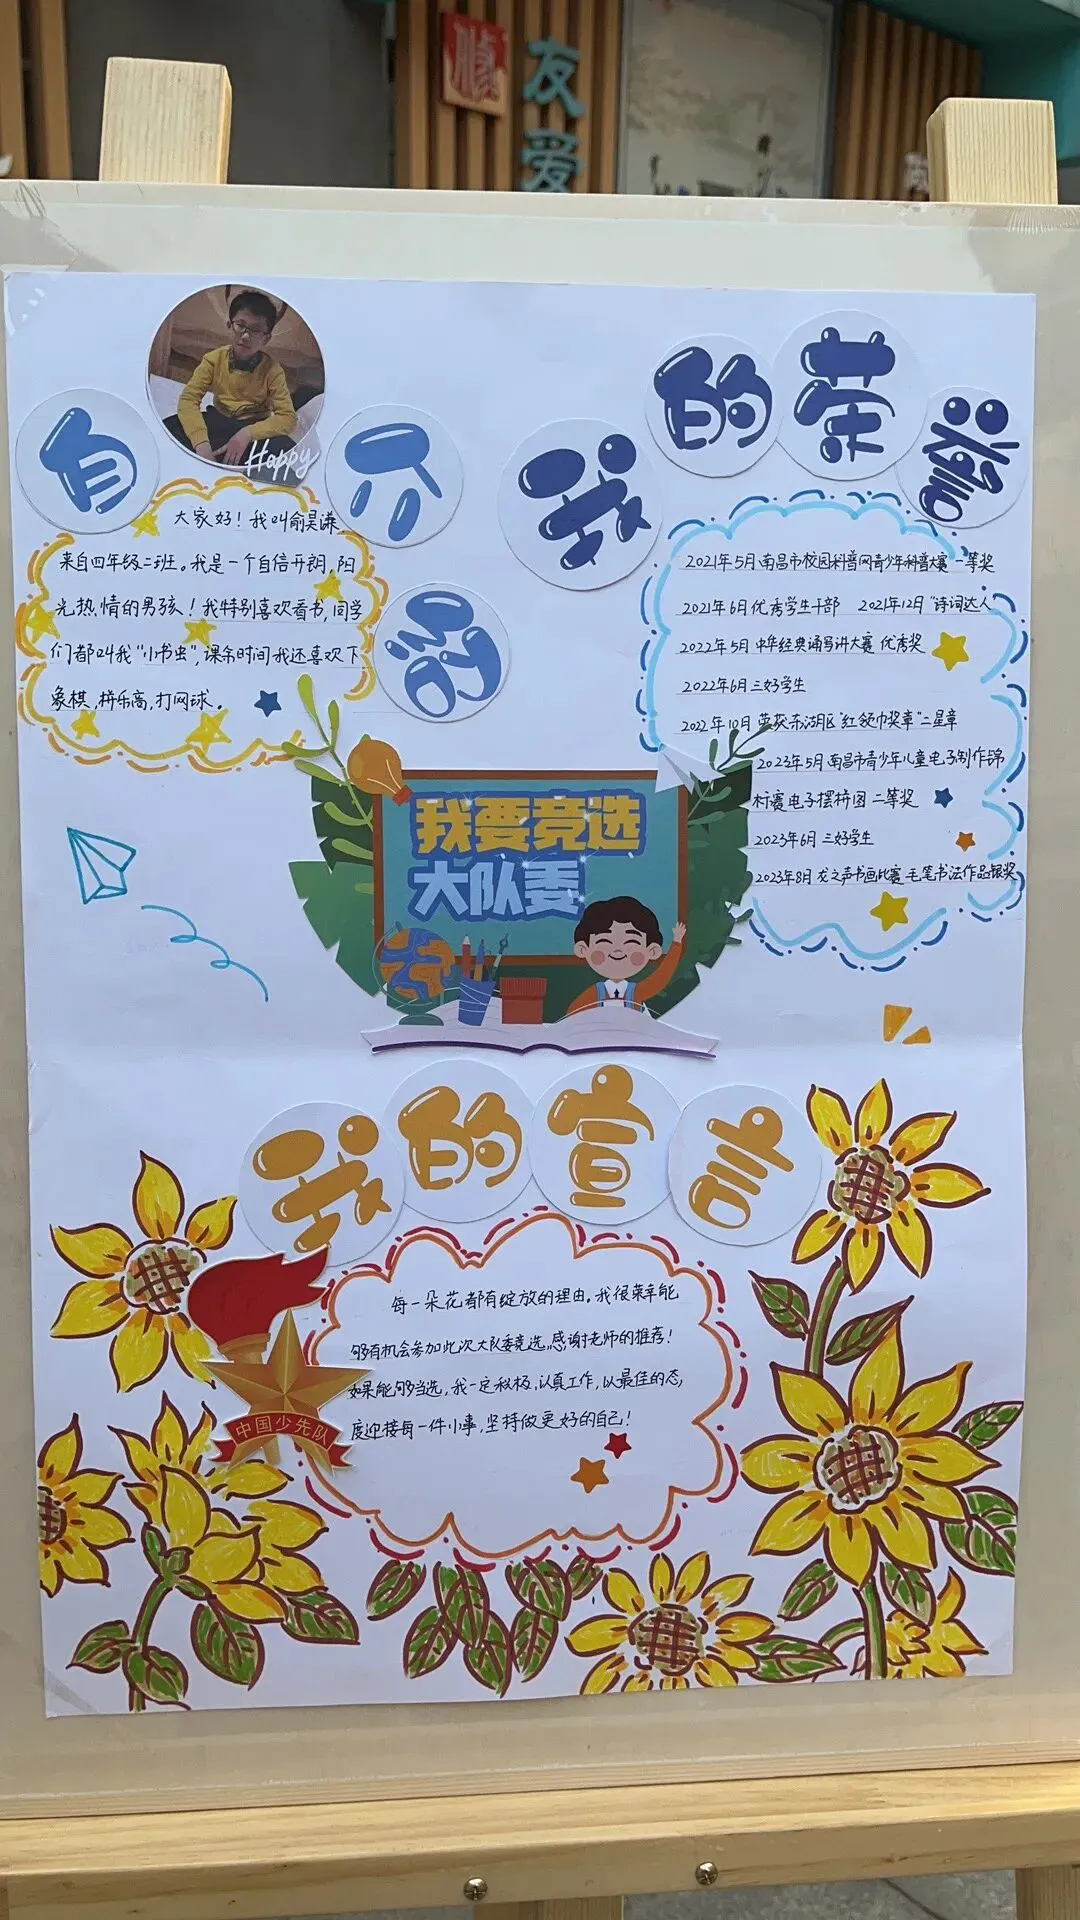 友爱
Happy
自介绍
大家好！我叫俞昊谦
来自四年级二班。我是一个自信开朗，阳
光热情的男孩！我特别喜欢看书，同学
们都叫我“小书虫”，课余时间我还喜欢下
象棋，拼乐高，打网球。
我的荣誉
2021年5月南昌市校园科普网青少年科普大赛 一等奖
2021年6月优秀学生干部 2021年12月“诗词达人”
2022年5月中华经典诵写讲大赛 优秀奖
2022年6月三好学生
2022年10月 荣获东湖区“红领巾奖章”二星章
2023年5月南昌市青少年儿童电子制作锦
标赛电子摆拼图 二等奖
2023年6月 三好学生
2023年8月 龙之声书画比赛 毛笔书法作品银奖
我要竞选
大队委
我的宣言
每一朵花都有绽放的理由。我很荣幸能
够有机会参加此次大队委竞选，感谢老师的推荐！
如果能够当选，我一定积极，认真工作，以最佳的态，
度迎接每一件小事，坚持做更好的自己！
中国少先队